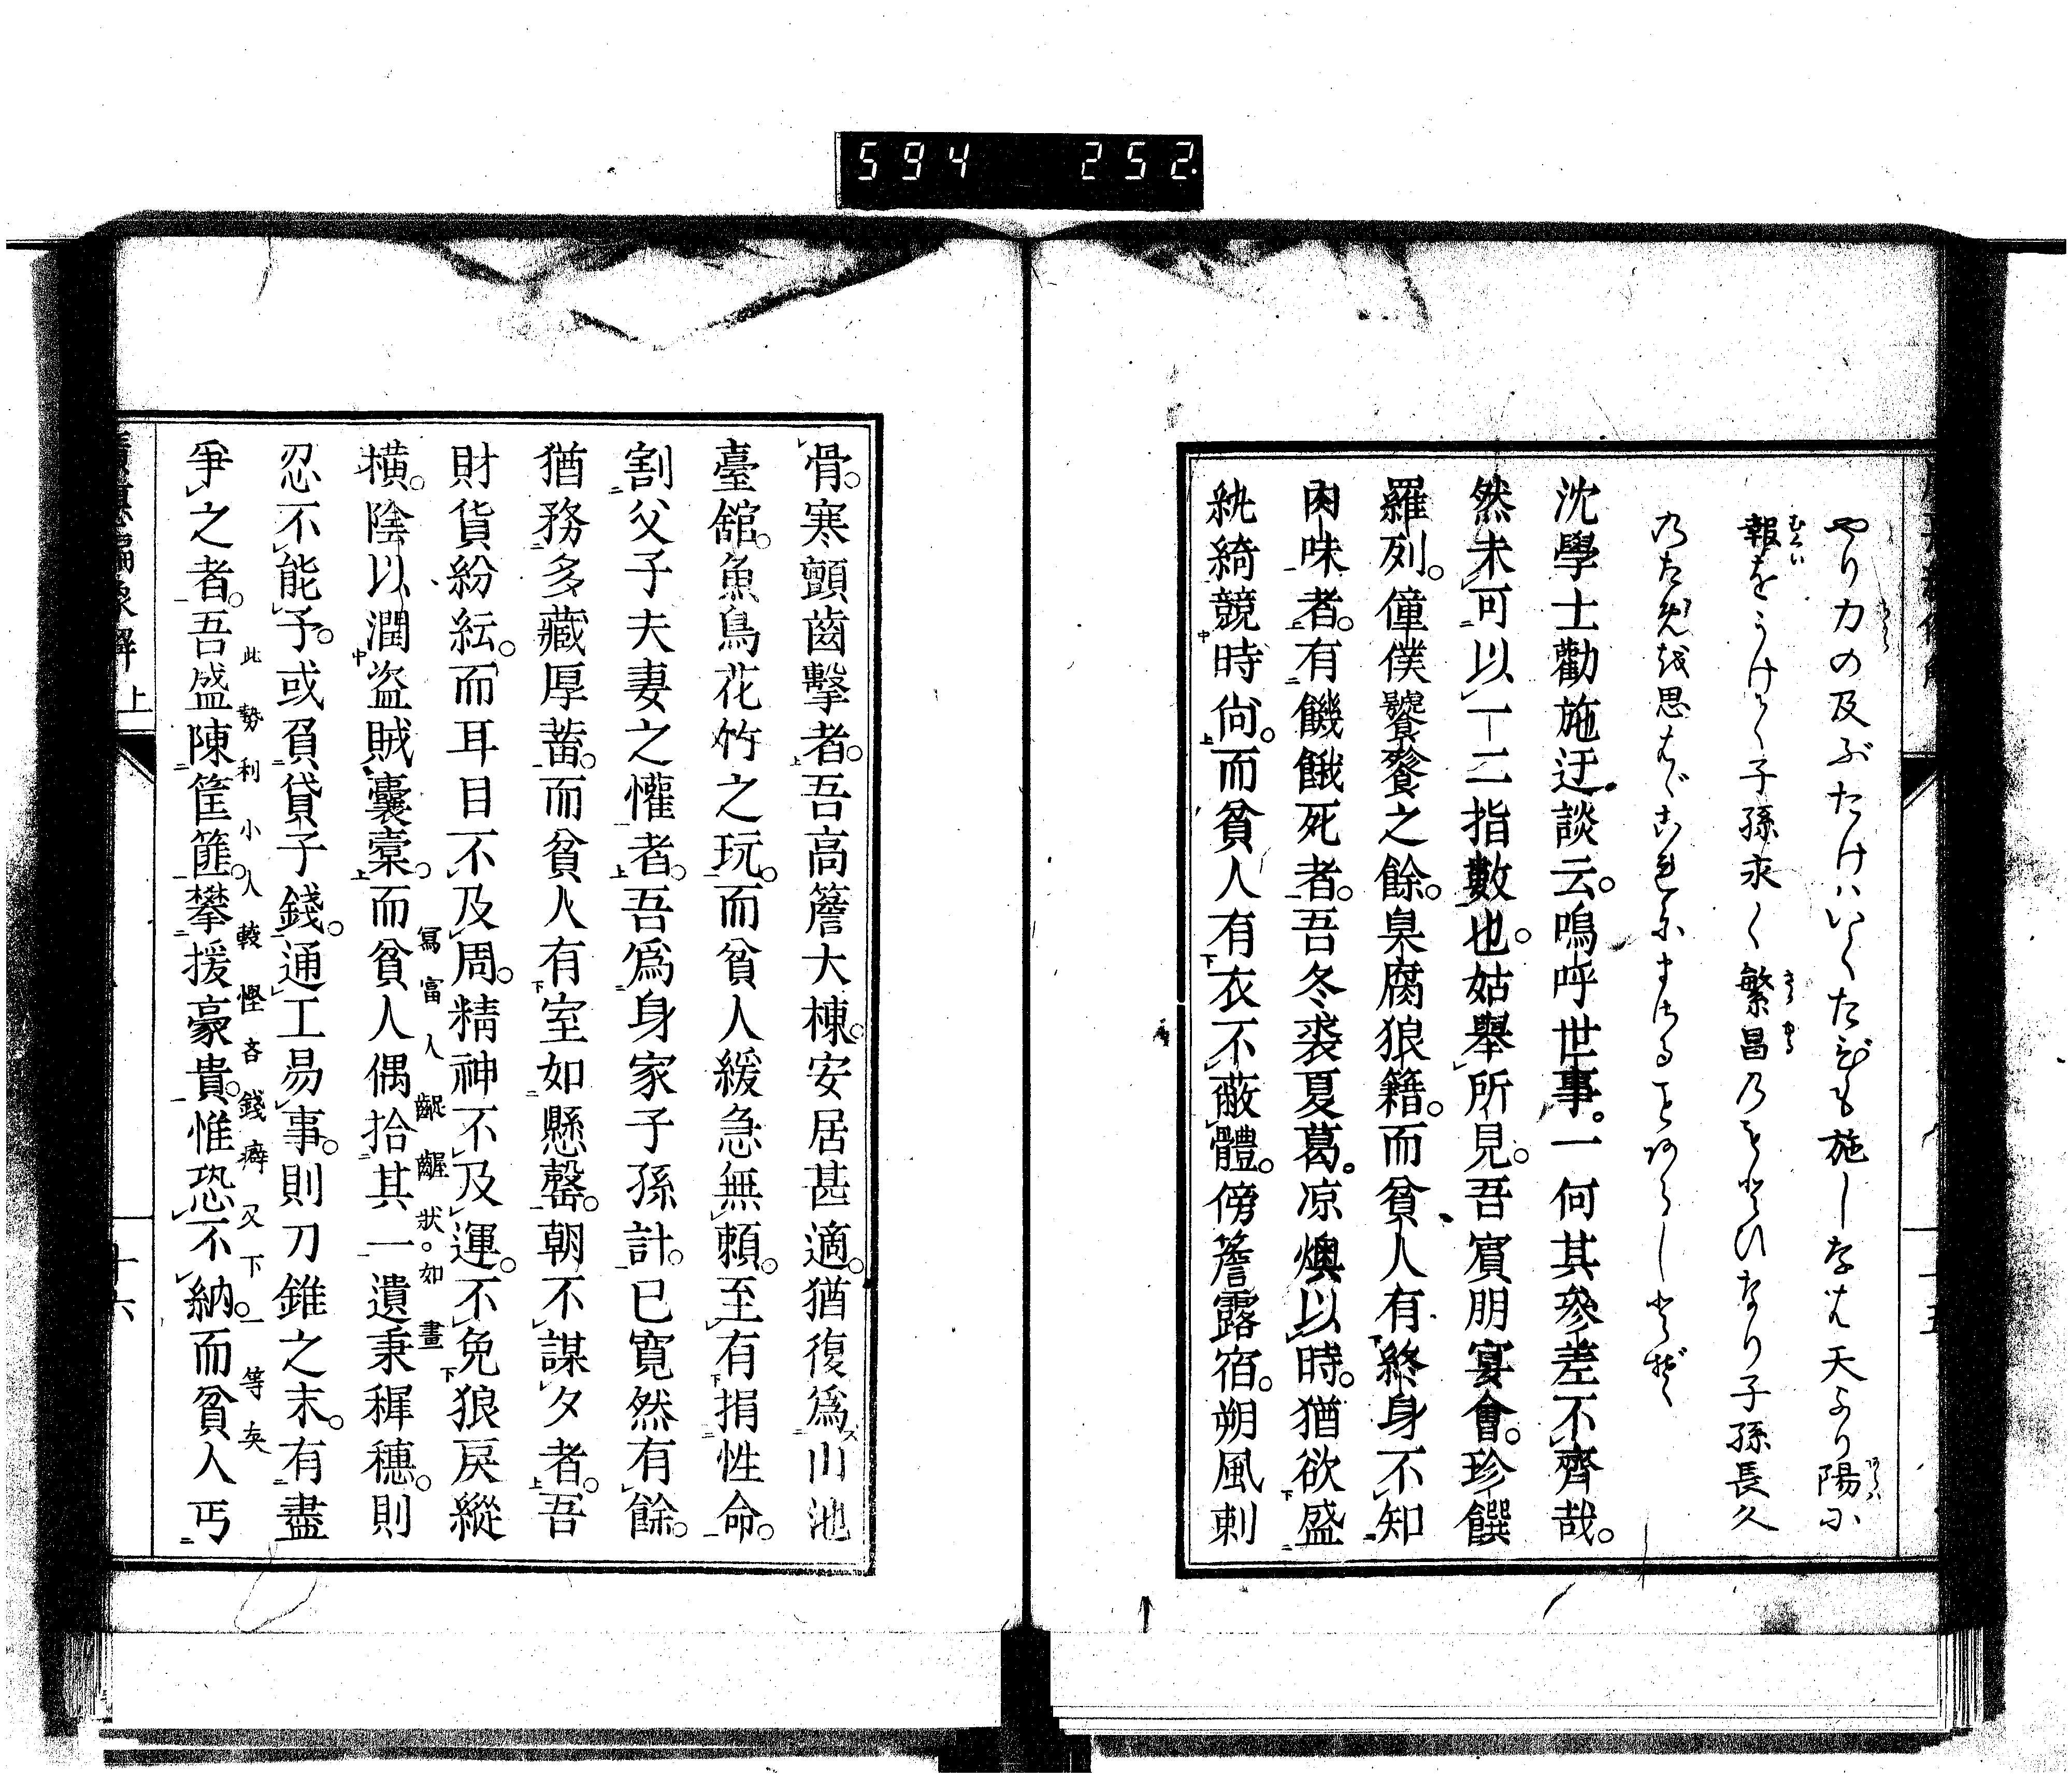 594 252.
やり力の及ぶたけハいくたびも施しなは天より陽に
報をうけて子孫永く繁昌の
なり子孫長久
思
沈學士勸施迂談云。鳴呼世事。一何其參差不齊哉。
然未可以一二指數也。姑舉所見。吾賓朋宴會。珍饌
羅列。僮僕饕餮之餘。臭腐狼籍。而貧人有終身不知
肉味者。有饑餓死者。吾冬裘夏葛。凉燠以時。猶欲盛
紈綺競時尙。而貧人有衣不蔽體。傍簷露宿。朔風刺
十五
骨。寒顫齒擊者。吾高簷大棟。安居甚適。猶復爲川池
臺舘。魚鳥花竹之玩。而貧人緩急無頼。至有捐性命。
割父子夫妻之懽者。吾爲身家子孫計。已寛然有餘。
猶務多藏厚蓄。而貧人有室如懸罄。朝不謀夕者。吾
財貨紛紜。而耳目不及周。精神不及運。不免狼戻縱
橫。陰以潤盜賊囊槖。而貧人偶拾其一遺秉穉穗。則
寫富人齷齪狀。如畫
忍不能予。或負貸子錢。通工易事。則刀錐之末。有盡
爭之者。吾盛陳筐篚。攀援豪貴。惟恐不納。而貧人丐
此勢利小人較慳吝錢癖又下一等矣
上
十六